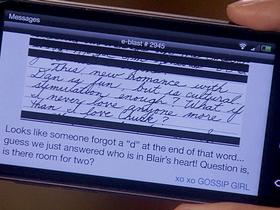 Messages
e-blast # 2945
this new romance with
Dan is fun, but is cultural
simulation enough? What if
I never love anyone more
than I love Chuck?
Looks like someone forgot a "d" at the end of that word...
guess we just answered who is in Blair's heart! Question is,
is there room for two?
xo xo GOSSIP GIRL